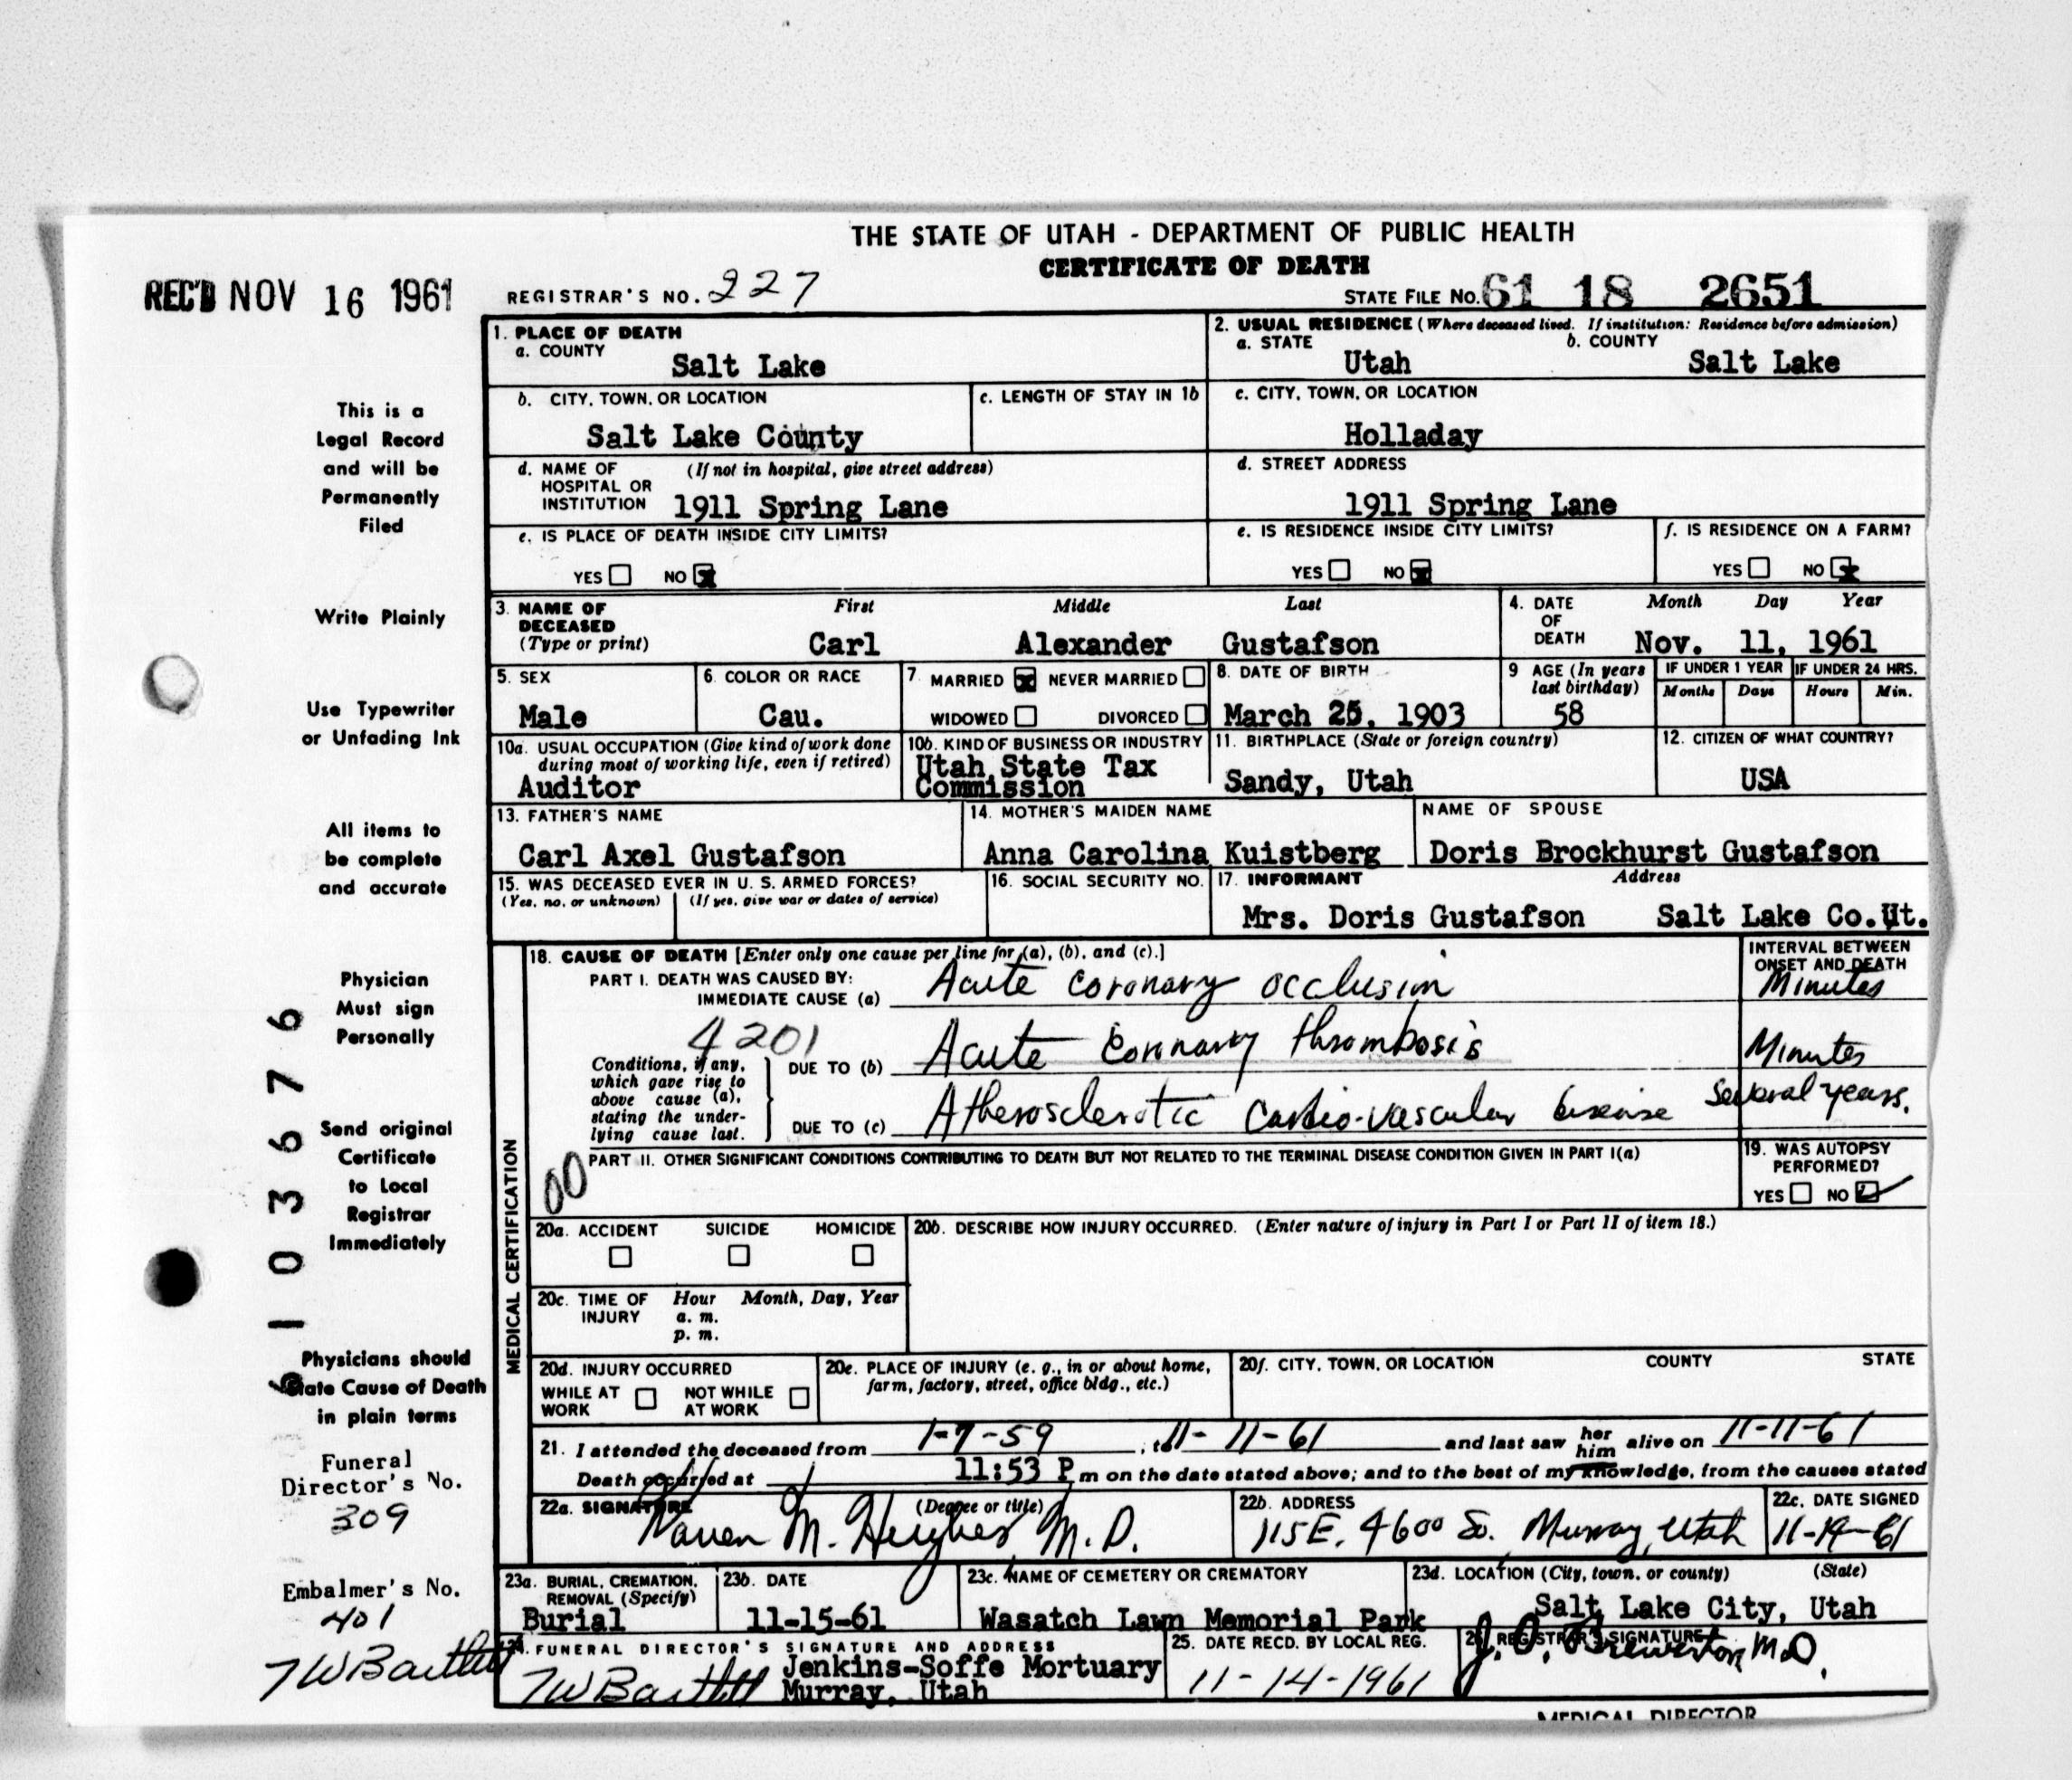 THE STATE OF UTAH - DEPARTMENT OF PUBLIC HEALTH
CERTIFICATE OF DEATH
REC'D NOV 16 1961
REGISTRAR'S NO. 227
STATE FILE NO. 61 18 2651
1. PLACE OF DEATH
a. COUNTY
Salt Lake
2. USUAL RESIDENCE (Where deceased lived. If institution: Residence before admission)
a. STATE
Utah
b. COUNTY
Salt Lake
b. CITY, TOWN, OR LOCATION
Salt Lake County
c. LENGTH OF STAY IN 1b
c. CITY, TOWN, OR LOCATION
Holladay
d. NAME OF HOSPITAL OR INSTITUTION (If not in hospital, give street address)
1911 Spring Lane
d. STREET ADDRESS
1911 Spring Lane
e. IS PLACE OF DEATH INSIDE CITY LIMITS?
YES NO x
e. IS RESIDENCE INSIDE CITY LIMITS?
YES NO x
f. IS RESIDENCE ON A FARM?
YES NO x
3. NAME OF DECEASED (Type or print)
First Middle Last
Carl Alexander Gustafson
4. DATE OF DEATH
Month Day Year
Nov. 11, 1961
5. SEX
Male
6. COLOR OR RACE
Cau.
7. MARRIED x NEVER MARRIED
WIDOWED DIVORCED
8. DATE OF BIRTH
March 25, 1903
9 AGE (In years last birthday)
58
IF UNDER 1 YEAR
Months Days
IF UNDER 24 HRS.
Hours Min.
10a. USUAL OCCUPATION (Give kind of work done during most of working life, even if retired)
Auditor
10b. KIND OF BUSINESS OR INDUSTRY
Utah State Tax
Commission
11. BIRTHPLACE (State or foreign country)
Sandy, Utah
12. CITIZEN OF WHAT COUNTRY?
USA
13. FATHER'S NAME
Carl Axel Gustafson
14. MOTHER'S MAIDEN NAME
Anna Carolina Kuistberg
NAME OF SPOUSE
Doris Brockhurst Gustafson
15. WAS DECEASED EVER IN U. S. ARMED FORCES?
(Yes, no, or unknown) (If yes, give war or dates of service)
16. SOCIAL SECURITY NO.
17. INFORMANT Address
Mrs. Doris Gustafson Salt Lake Co.Ut.
MEDICAL CERTIFICATION
18. CAUSE OF DEATH [Enter only one cause per line for (a), (b), and (c).]
INTERVAL BETWEEN ONSET AND DEATH
PART I. DEATH WAS CAUSED BY:
IMMEDIATE CAUSE (a) Acute coronary occlusion Minutes
4201
Conditions, if any, which gave rise to above cause (a), stating the underlying cause last.
DUE TO (b) Acute coronary thrombosis Minutes
DUE TO (c) Atherosclerotic cardio-vascular disease Several years.
00
PART II. OTHER SIGNIFICANT CONDITIONS CONTRIBUTING TO DEATH BUT NOT RELATED TO THE TERMINAL DISEASE CONDITION GIVEN IN PART I(a)
19. WAS AUTOPSY PERFORMED?
YES NO
20a. ACCIDENT SUICIDE HOMICIDE
20b. DESCRIBE HOW INJURY OCCURRED. (Enter nature of injury in Part I or Part II of item 18.)
20c. TIME OF INJURY Hour Month, Day, Year
a. m.
p. m.
20d. INJURY OCCURRED
WHILE AT WORK NOT WHILE AT WORK
20e. PLACE OF INJURY (e. g., in or about home, farm, factory, street, office bldg., etc.)
20f. CITY, TOWN, OR LOCATION COUNTY STATE
21. I attended the deceased from 1-7-59, to 11-11-61 and last saw her him alive on 11-11-61
Death occurred at 11:53 P m on the date stated above; and to the best of my knowledge, from the causes stated
22a. SIGNATURE (Degree or title)
M. Hughes M.D.
22b. ADDRESS
115 E. 4600 So. Murray, Utah
22c. DATE SIGNED
11-14-61
23a. BURIAL, CREMATION, REMOVAL (Specify)
Burial
23b. DATE
11-15-61
23c. NAME OF CEMETERY OR CREMATORY
Wasatch Lawn Memorial Park
23d. LOCATION (City, town, or county) (State)
Salt Lake City, Utah
24. FUNERAL DIRECTOR'S SIGNATURE AND ADDRESS
TW Bartlett
Jenkins-Soffe Mortuary
Murray, Utah
25. DATE RECD. BY LOCAL REG.
11-14-1961
26. REGISTRAR'S SIGNATURE
J. O. Brewerton, M.D.
MEDICAL DIRECTOR
This is a
Legal Record
and will be
Permanently
Filed
Write Plainly
Use Typewriter
or Unfading Ink
All items to
be complete
and accurate
Physician
Must sign
Personally
Send original
Certificate
to Local
Registrar
Immediately
Physicians should
State Cause of Death
in plain terms
Funeral
Director's No.
309
Embalmer's No.
401
TW Bartlett
6103676